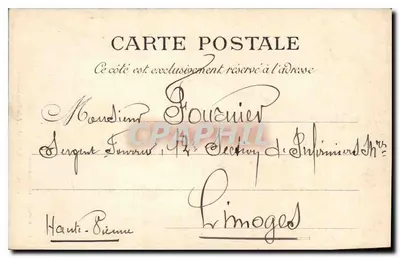 CARTE POSTALE
Ce côté est exclusivement réservé à l'adresse
Monsieur Fournier
Sergent Fourrier, 12e Section de Infirmiers Mres
Limoges
Haute-Vienne
CARTAPHIL